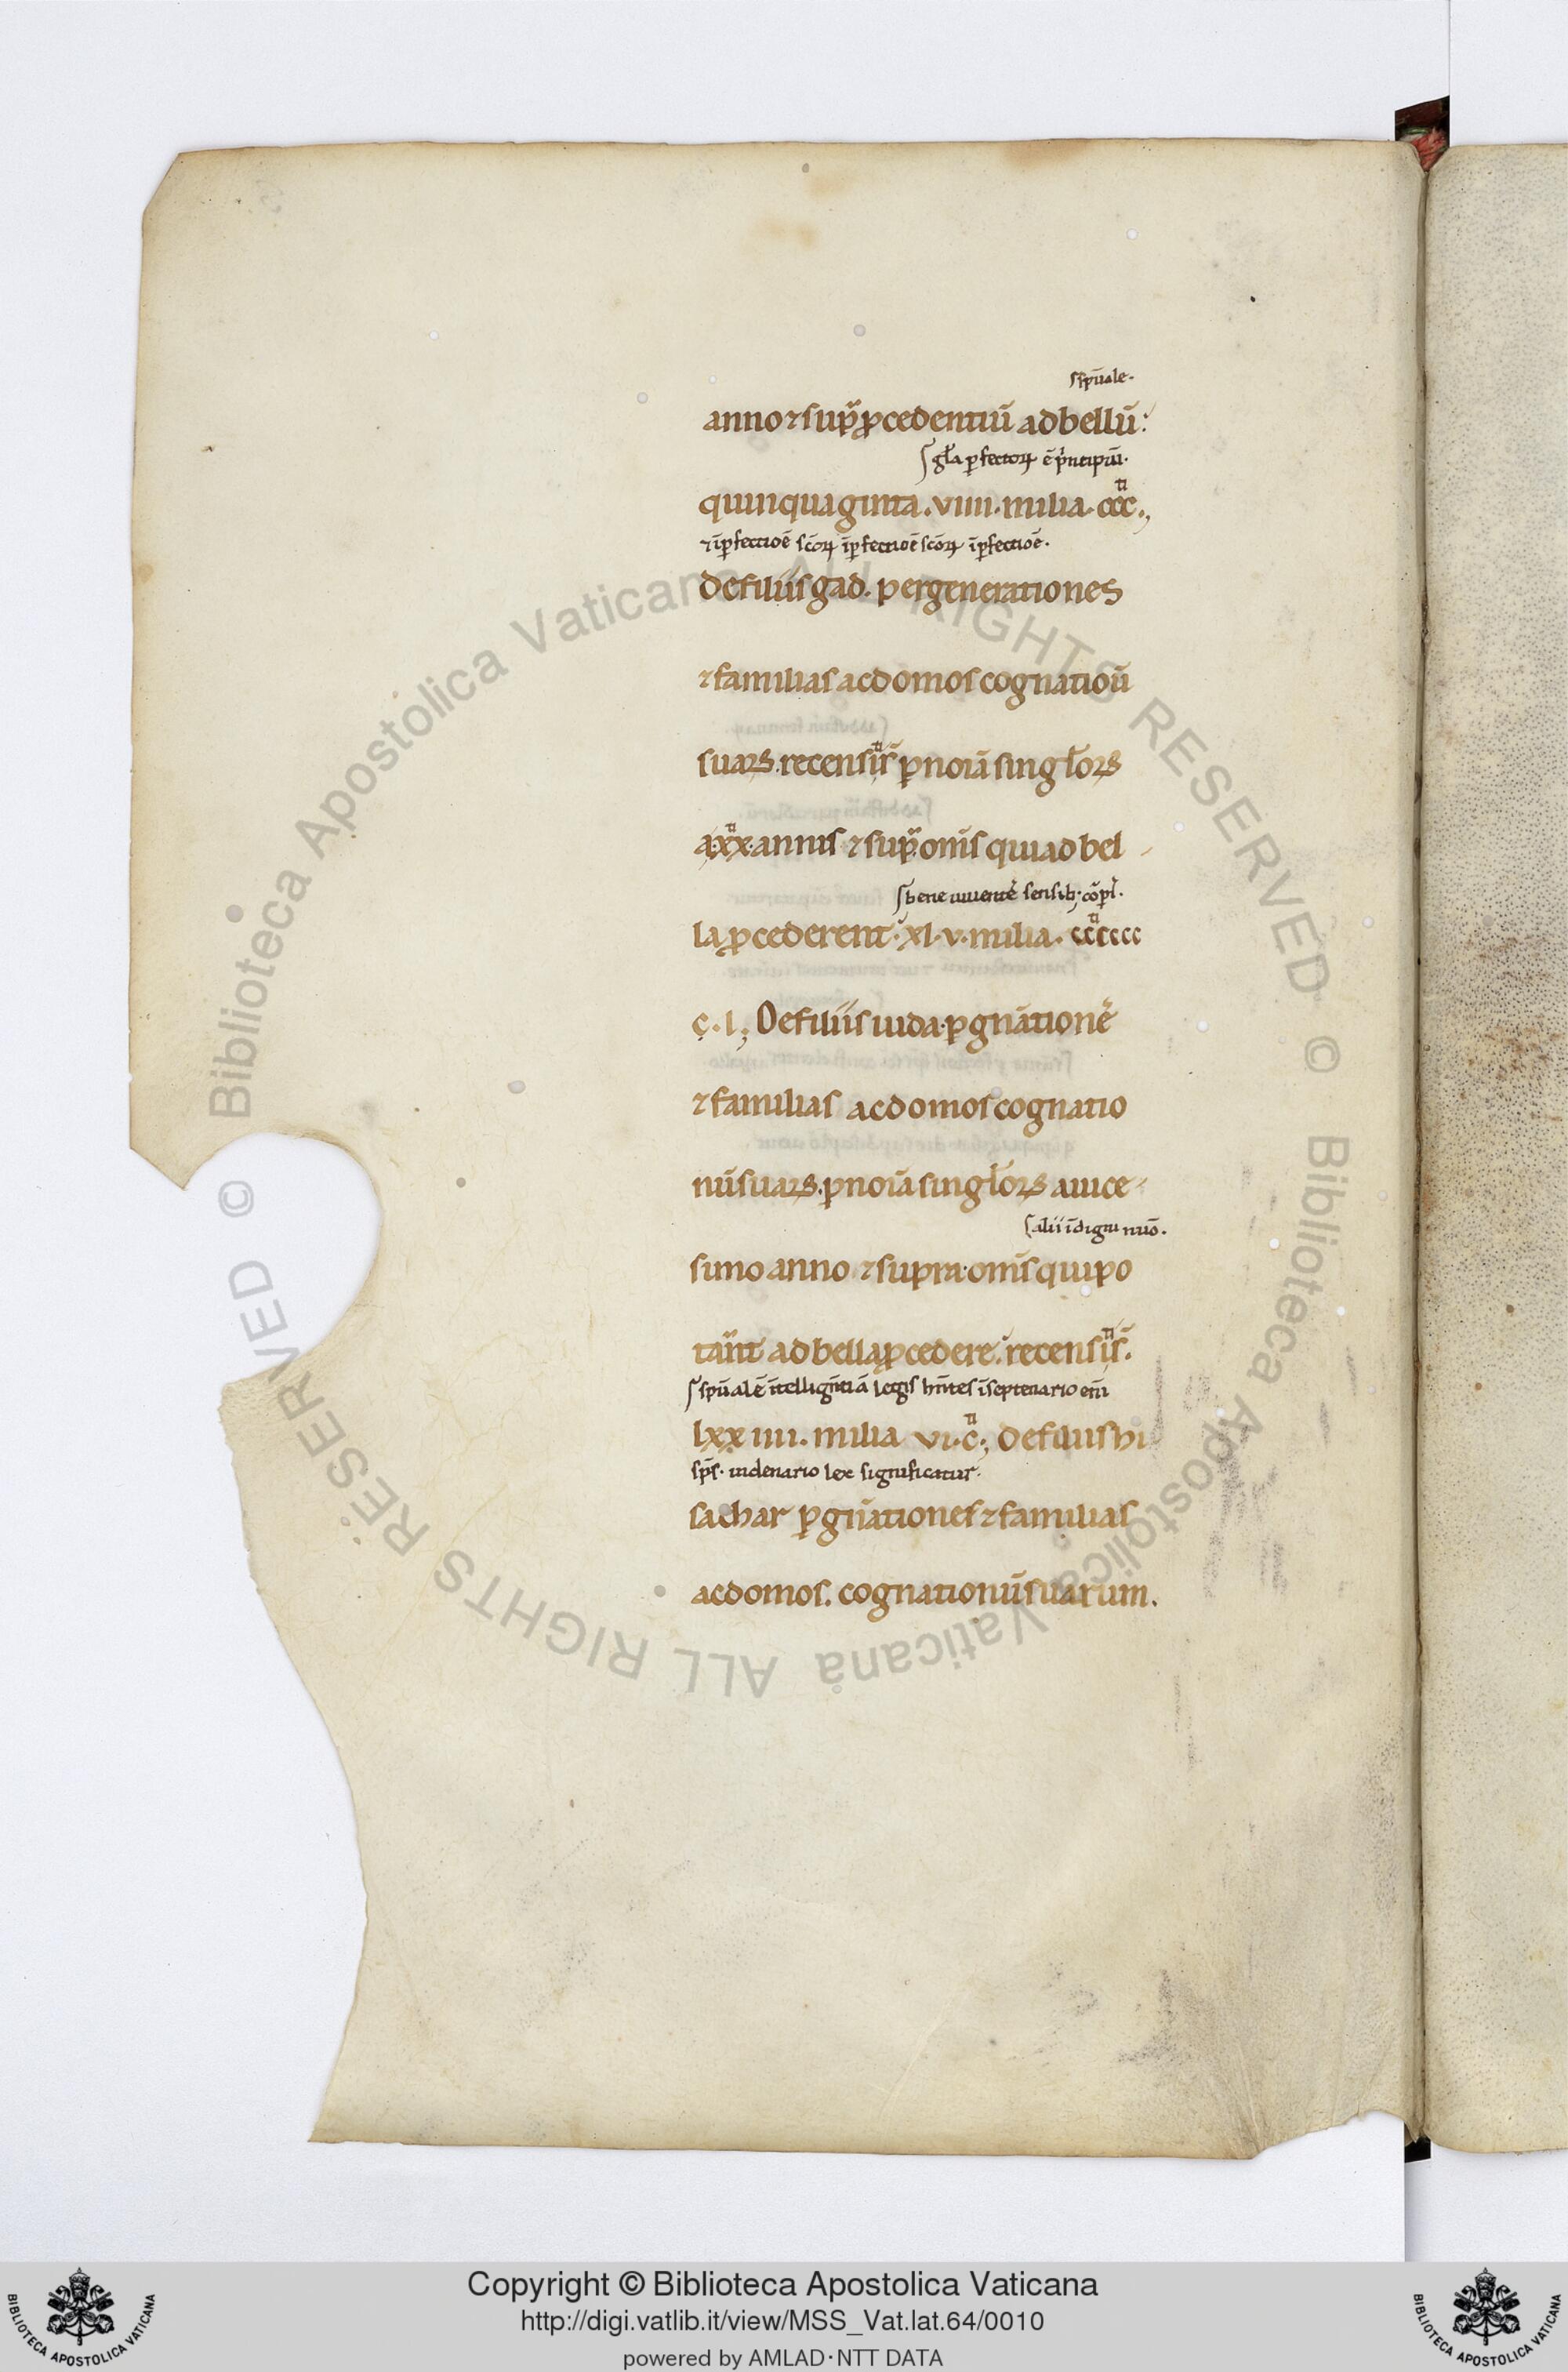 sp̄uale.
anno ⁊ sup̄ p̱cedentiū ad bellū:
gl̄a ꝑfectoꝝ ē p̄ncipiū.
quinquaginta. viiii. milia. ccc.,
⁊ īꝑfectioē sc̄oꝝ īꝑfectioē sc̄oꝝ īꝑfectioē.
de filiis gad. per generationes
⁊ familias ac domos cognatioū
suaꝝ. recensīs ꝑ noīa singl̄oꝝ
a xx annis ⁊ sup̄ om̄s qui ad bel
bene uiuentē sensib;
la ꝓcederent. xl. v. milia. cccccc
c. l; De filiis iuda. ꝑ gn̄ationē
⁊ familias ac domos cognatio
nū suaꝝ. ꝑ noīa singl̄oꝝ a uice
alii īdigni
simo anno ⁊ supra. om̄s qui po
tān̄t ad bella ꝓcedere. recensīs̄.
sp̄ualē ītellign̄tiā legis hn̄tes ī septenario eni
lxx iiii. milia vi. c.; De filiis hi
sp̄s. in denario lex significatur.
sachar ꝑ gn̄ationes ⁊ familias
ac domos. cognationū suarum.
© Biblioteca Apostolica Vaticana ALL RIGHTS RESERVED © Biblioteca Apostolica Vaticana ALL RIGHTS RESERVED
Copyright © Biblioteca Apostolica Vaticana
http://digi.vatlib.it/view/MSS_Vat.lat.64/0010
powered by AMLAD·NTT DATA
BIBLIOTECA APOSTOLICA VATICANA
BIBLIOTECA APOSTOLICA VATICANA